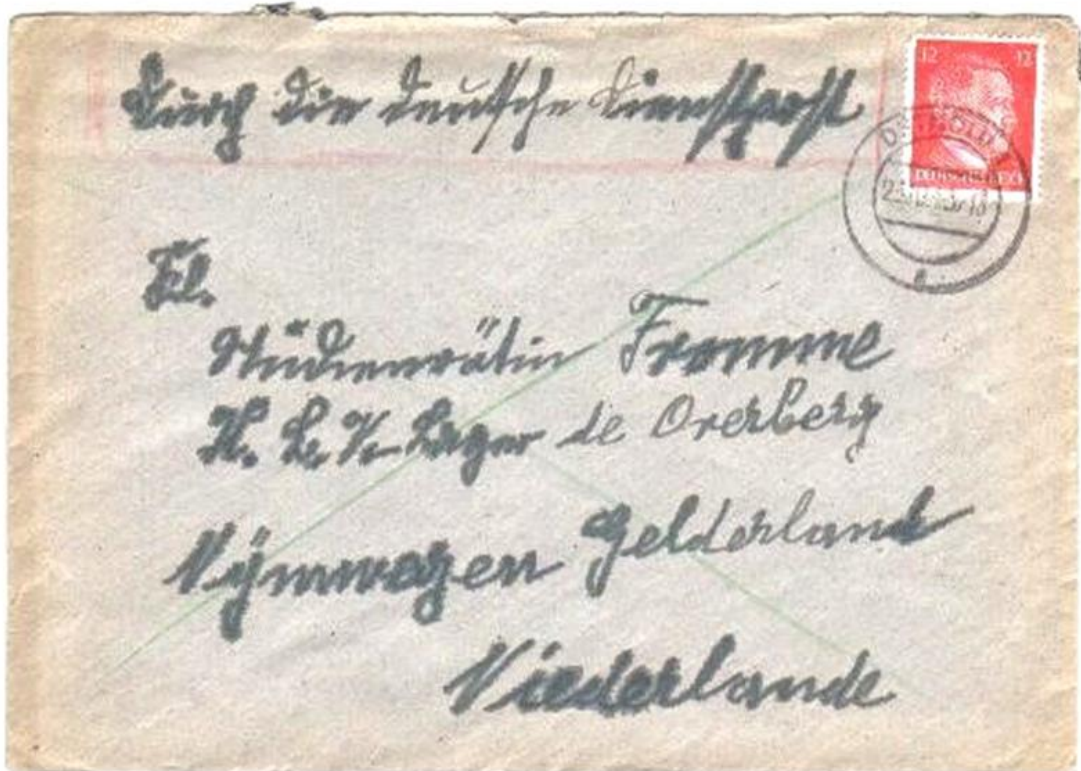 Durch die deutsche Dienstpost
12 12
DETMOLD
DEUTSCHES REICH
Frl.
Studienrätin Fromme
K. L. V. Lager de Overberg
Nÿmwegen Gelderland
Niederlande